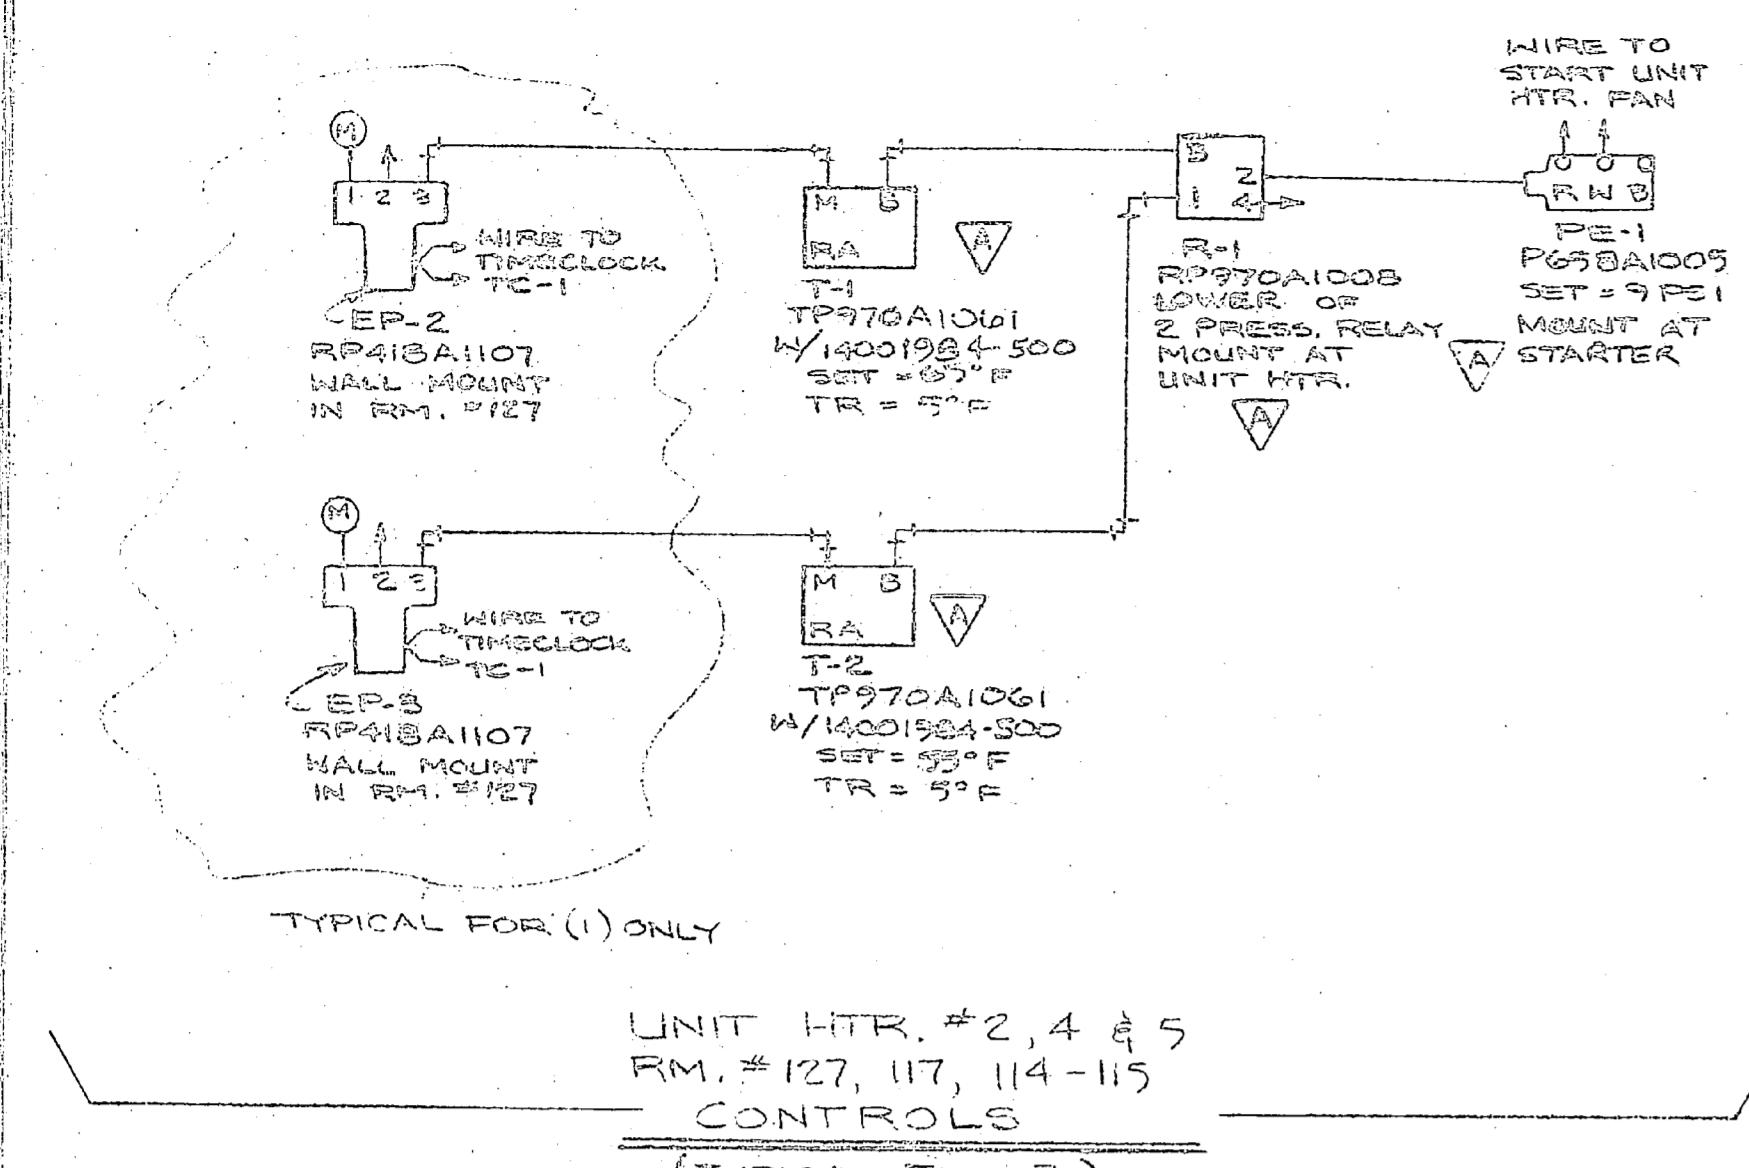 WIRE TO
START UNIT
HTR. FAN
M
1 2 3
WIRE TO
TIMECLOCK
TC-1
EP-2
RP418A1107
WALL MOUNT
IN RM. #127
M B
RA
A
T-1
TP970A1061
W/14001984-500
SET = 65°F
TR = 5°F
B
2
1 4
R-1
RP970A1008
LOWER OF
2 PRESS. RELAY
MOUNT AT
UNIT HTR.
A
R W B
PE-1
P658A1005
SET = 9 PSI
MOUNT AT
STARTER
A
M
1 2 3
WIRE TO
TIMECLOCK
TC-1
EP-3
RP418A1107
WALL MOUNT
IN RM. #127
M B
RA
A
T-2
TP970A1061
W/14001984-500
SET = 55°F
TR = 5°F
TYPICAL FOR (1) ONLY
UNIT HTR. #2, 4 & 5
RM. #127, 117, 114-115
CONTROLS